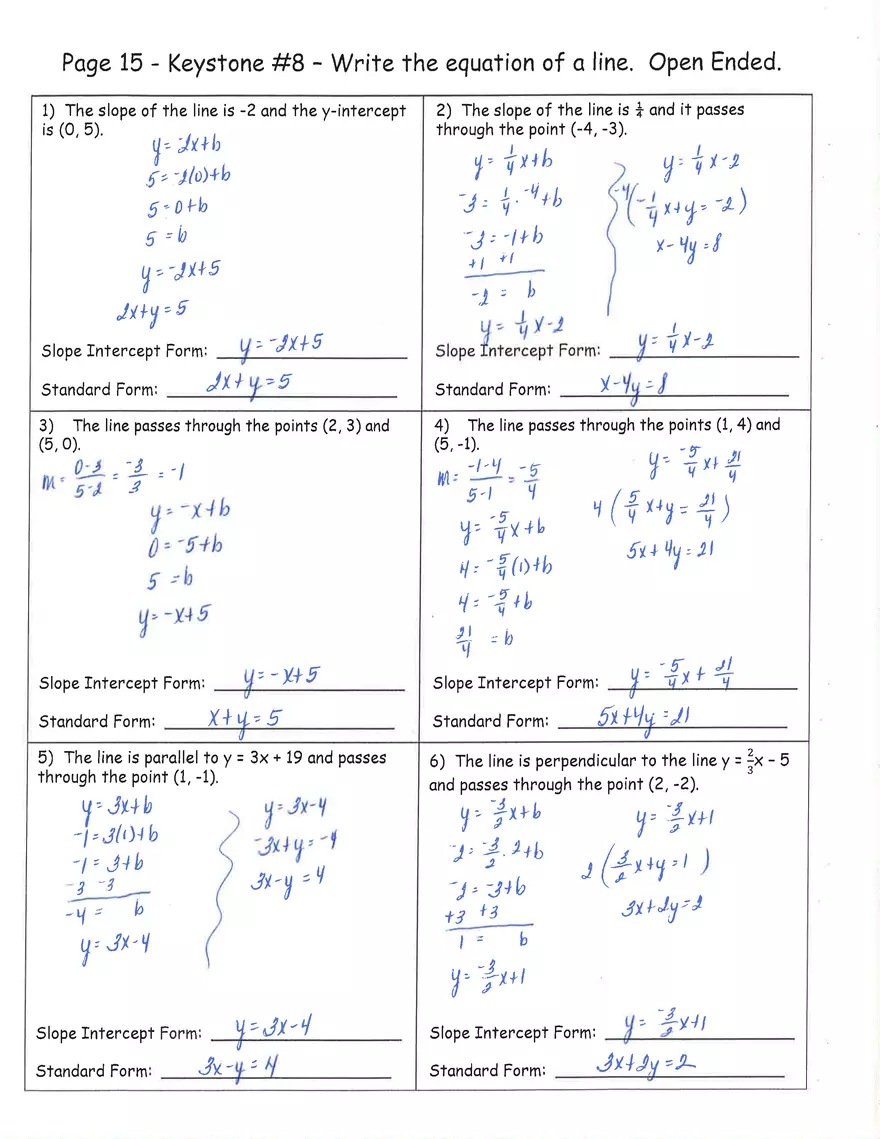 Page 15 - Keystone #8 – Write the equation of a line. Open Ended.
1) The slope of the line is -2 and the y-intercept
is (0, 5).
y = -2x+b
5 = -2(0)+b
5 = 0+b
5 = b
y = -2x+5
2x+y = 5
Slope Intercept Form: y = -2x+5
Standard Form: 2x+y=5
2) The slope of the line is ¼ and it passes
through the point (-4, -3).
y = 1/4 x+b
-3 = 1/4 · -4 +b
-3 = -1+b
+1 +1
-2 = b
y = 1/4 x-2
y = 1/4 x-2
-4(-1/4 x+y = -2)
x-4y = 8
Slope Intercept Form: y = 1/4 x-2
Standard Form: x-4y = 8
3) The line passes through the points (2, 3) and
(5, 0).
m = 0-3/5-2 = -3/3 = -1
y = -x+b
0 = -5+b
5 = b
y = -x+5
Slope Intercept Form: y = -x+5
Standard Form: x+y = 5
4) The line passes through the points (1, 4) and
(5, -1).
m = -1-4/5-1 = -5/4
y = -5/4 x+b
4 = -5/4 (1)+b
4 = -5/4 +b
21/4 = b
y = -5/4 x+ 21/4
4 (5/4 x+y = 21/4)
5x+4y = 21
Slope Intercept Form: y = -5/4 x + 21/4
Standard Form: 5x+4y = 21
5) The line is parallel to y = 3x + 19 and passes
through the point (1, -1).
y = 3x+b
-1 = 3(1)+b
-1 = 3+b
-3 -3
-4 = b
y = 3x-4
y = 3x-4
-3x+y = -4
3x-y = 4
Slope Intercept Form: y = 3x-4
Standard Form: 3x-y = 4
6) The line is perpendicular to the line y = 2/3 x – 5
and passes through the point (2, -2).
y = -3/2 x+b
-2 = -3/2 · 2+b
-2 = -3+b
+3 +3
1 = b
y = -3/2 x+1
y = -3/2 x+1
2 (3/2 x+y = 1)
3x+2y = 2
Slope Intercept Form: y = -3/2 x+1
Standard Form: 3x+2y = 2